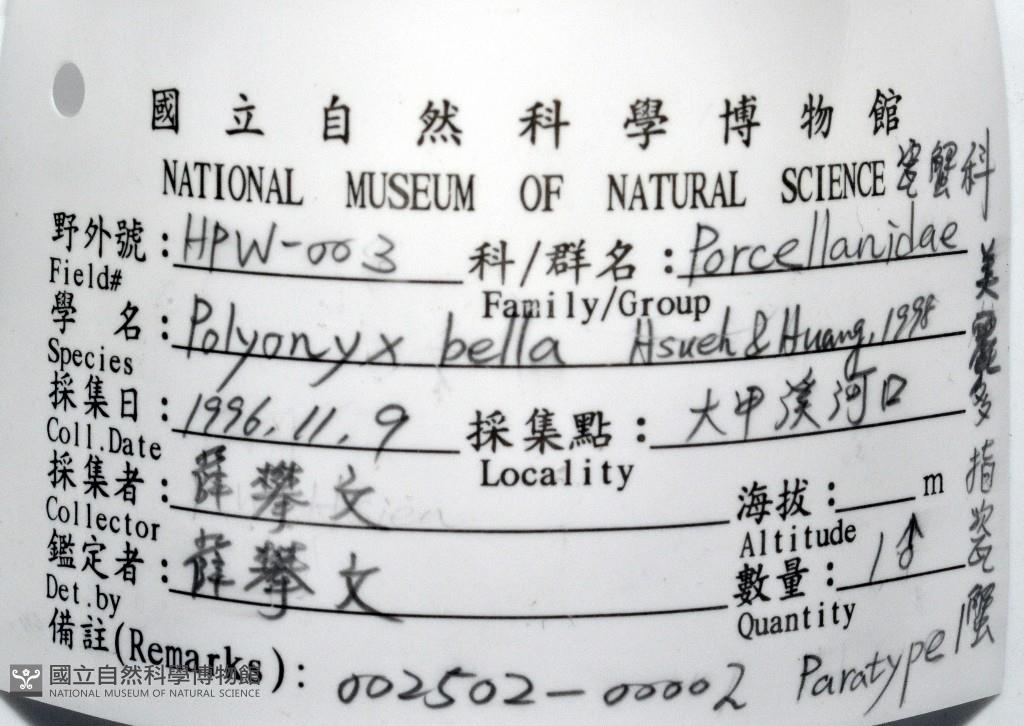 國立自然科學博物館
NATIONAL MUSEUM OF NATURAL SCIENCE 瓷蟹科
野外號: HPW-003 科/群名: Porcellanidae
Field# Family/Group
學名: Polyonyx bella Hsueh & Huang, 1998
Species
採集日: 1996.11.9 採集點: 大甲溪河口
Coll.Date Locality
採集者: 薛攀文 海拔: m
Collector Altitude
鑑定者: 薛攀文 數量: 1♂
Det.by Quantity
備註(Remarks): 002502-00002 Paratype
美麗多指瓷蟹
國立自然科學博物館
NATIONAL MUSEUM OF NATURAL SCIENCE